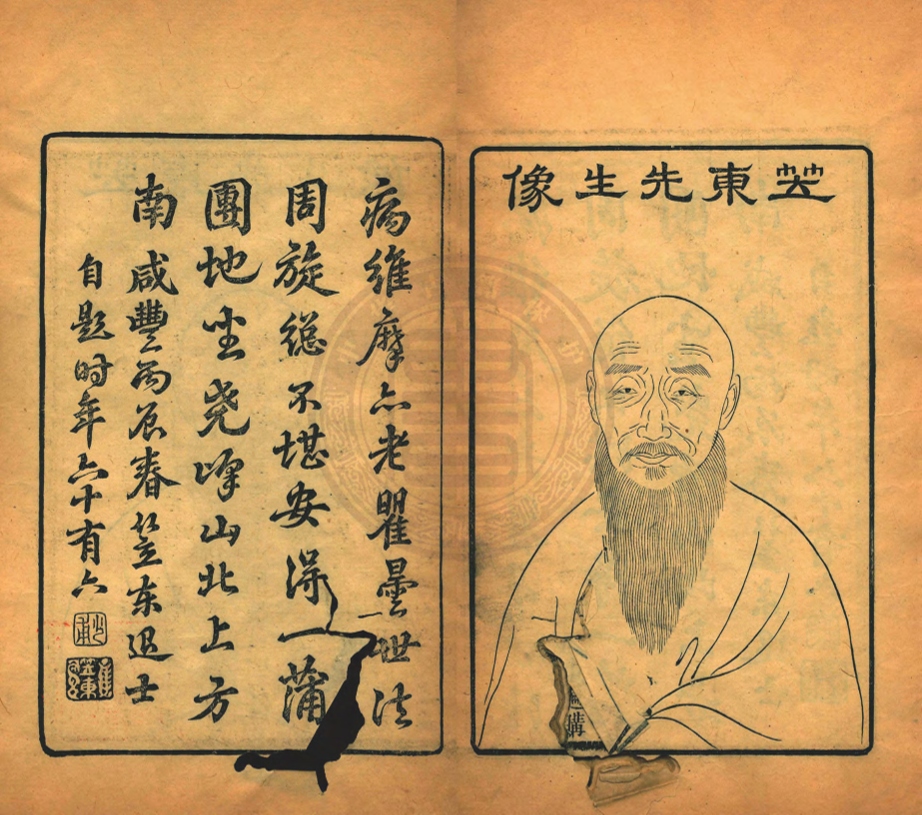 笠東先生像
病維摩亦老瞿曇世法
周旋總不堪安得一蒲
團地坐尧峰山北上方
南 咸豐丙辰春笠东退士
自題时年六十有六
購